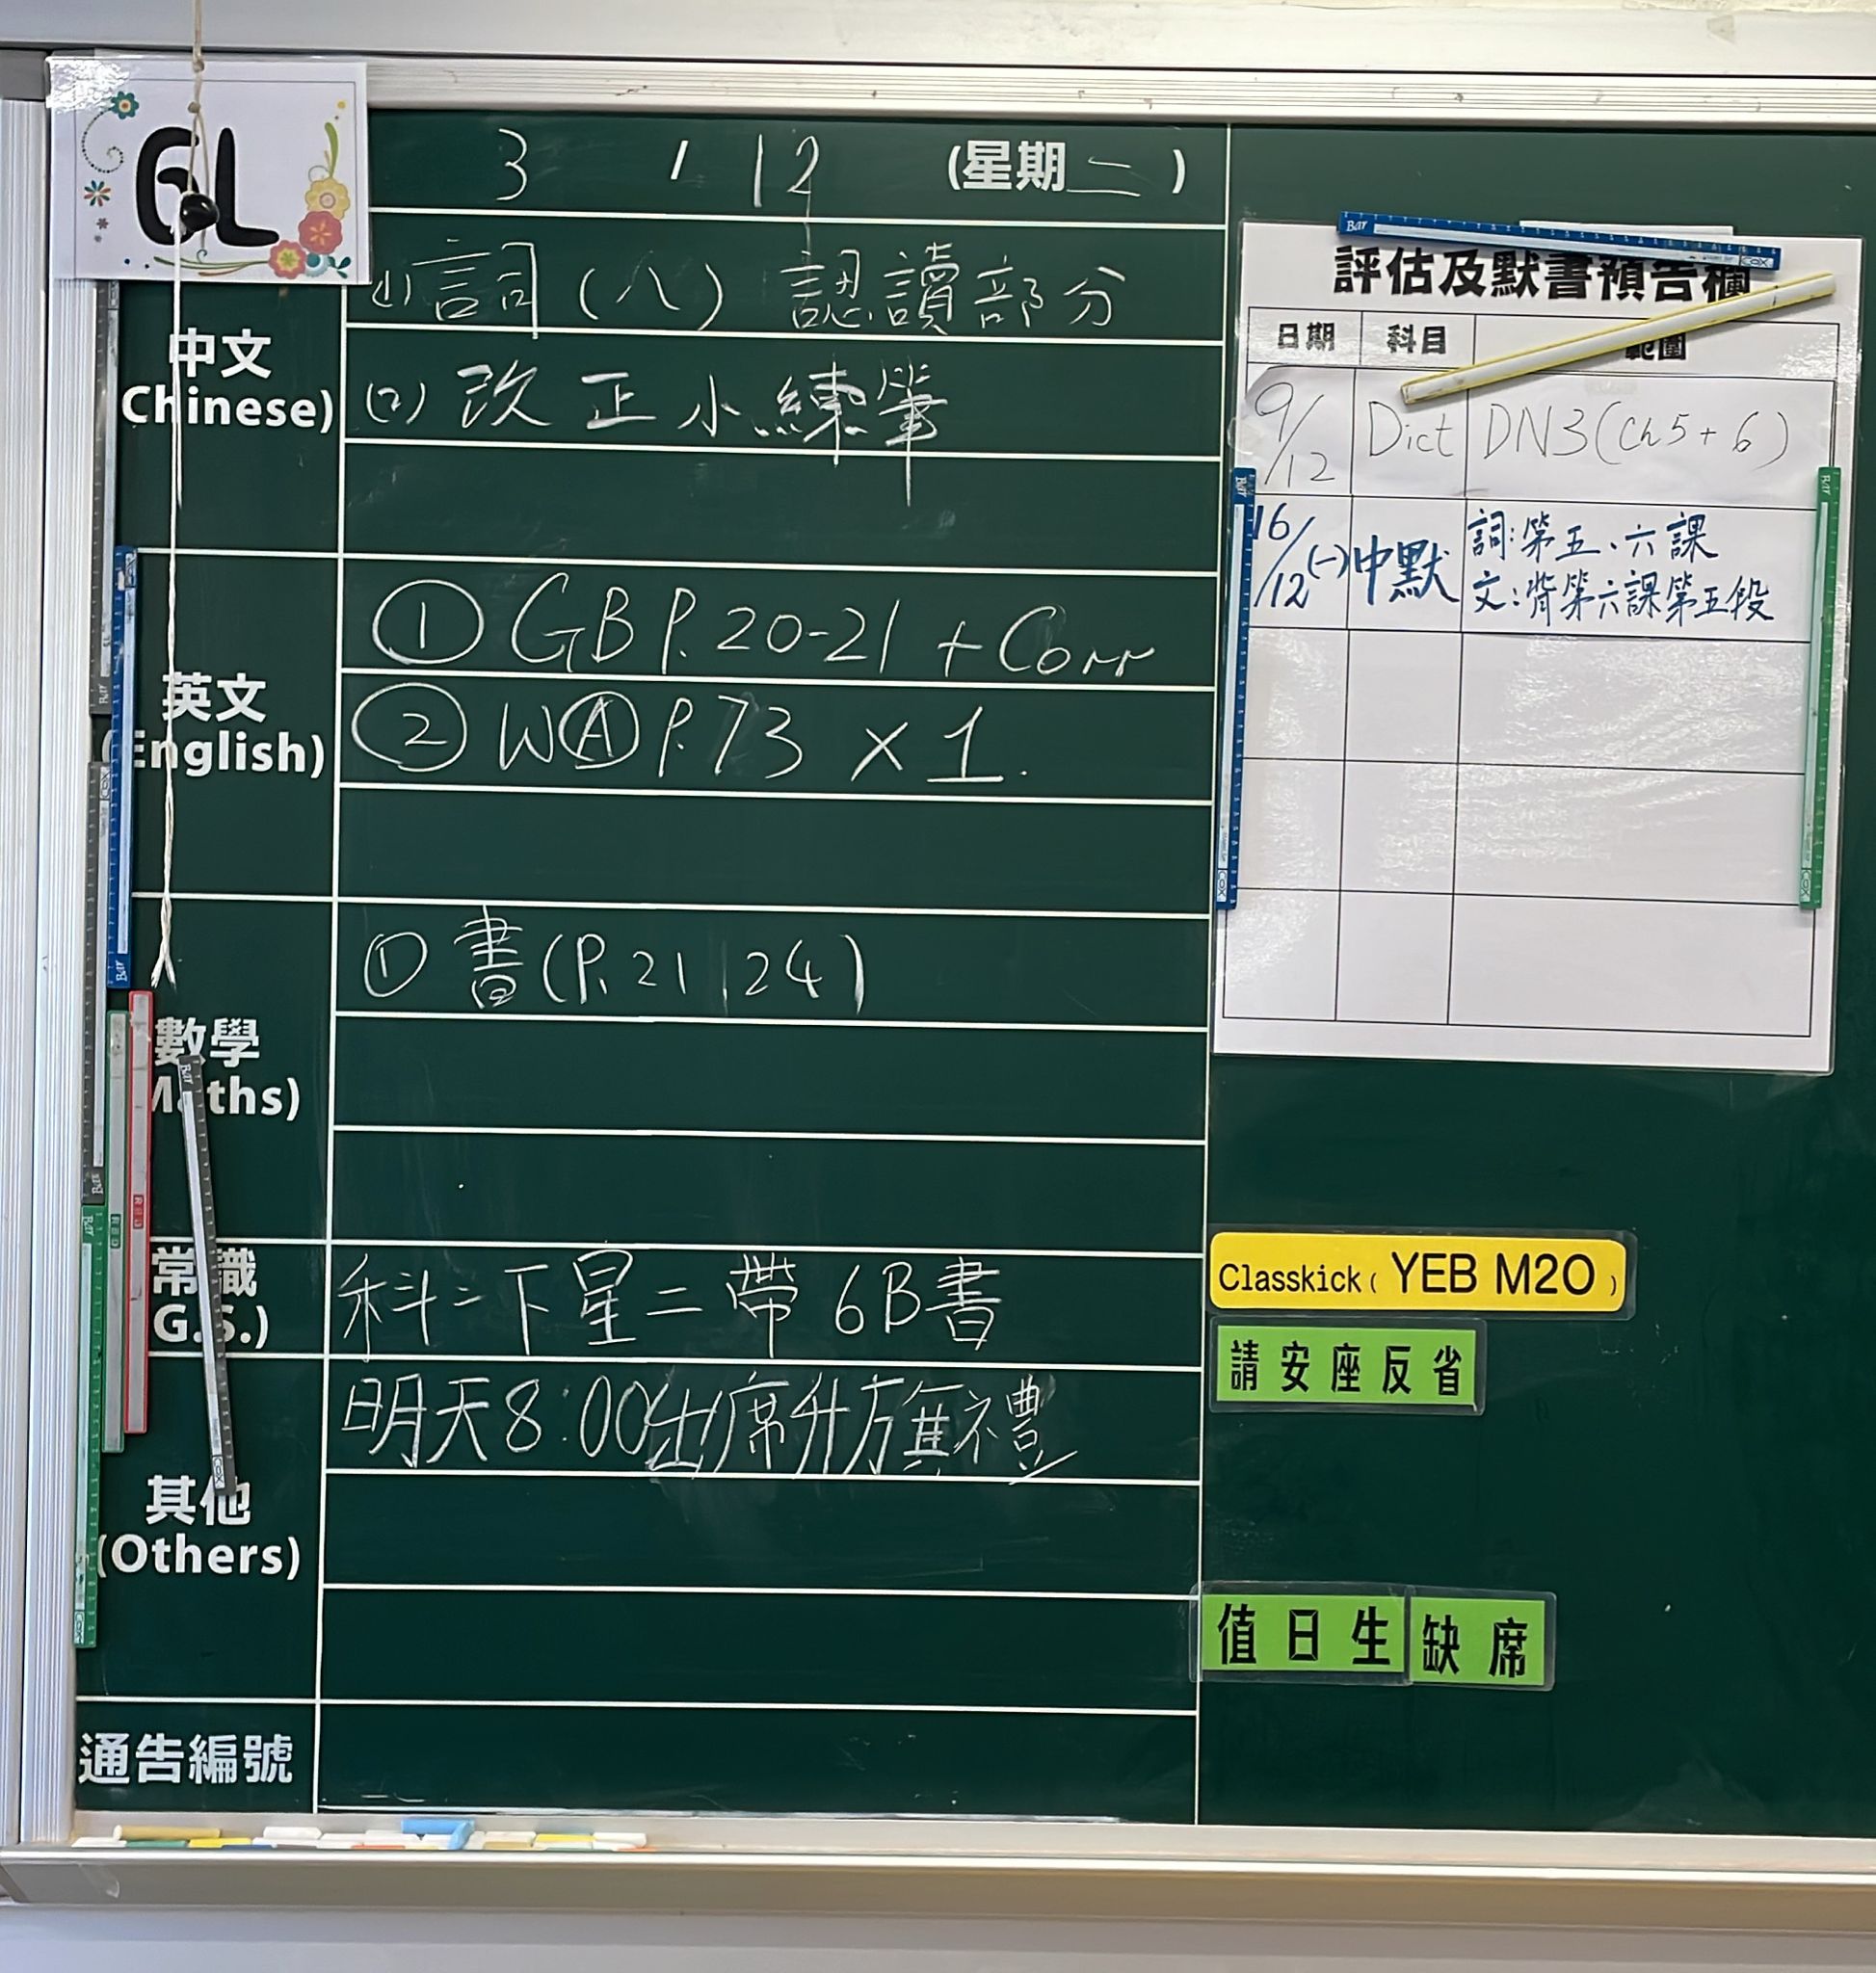 6L
3 / 12 (星期二)
中文
(Chinese)
(1) 詞(八) 認讀部分
(2) 改正小練筆
英文
(English)
① GB P.20-21 + Corr
② WⒶ P.73 × 1.
數學
(Maths)
① 書(P.21, 24)
常識
(G.S.)
科=下星二帶6B書
其他
(Others)
明天8:00出席升旗禮
通告編號
評估及默書預告欄
日期 科目 範圍
9/12 Dict DN3(Ch5+6)
16/12(一) 中默 詞:第五、六課
文:背第六課第五段
Classkick( YEB M2O )
請安座反省
值日生 缺席